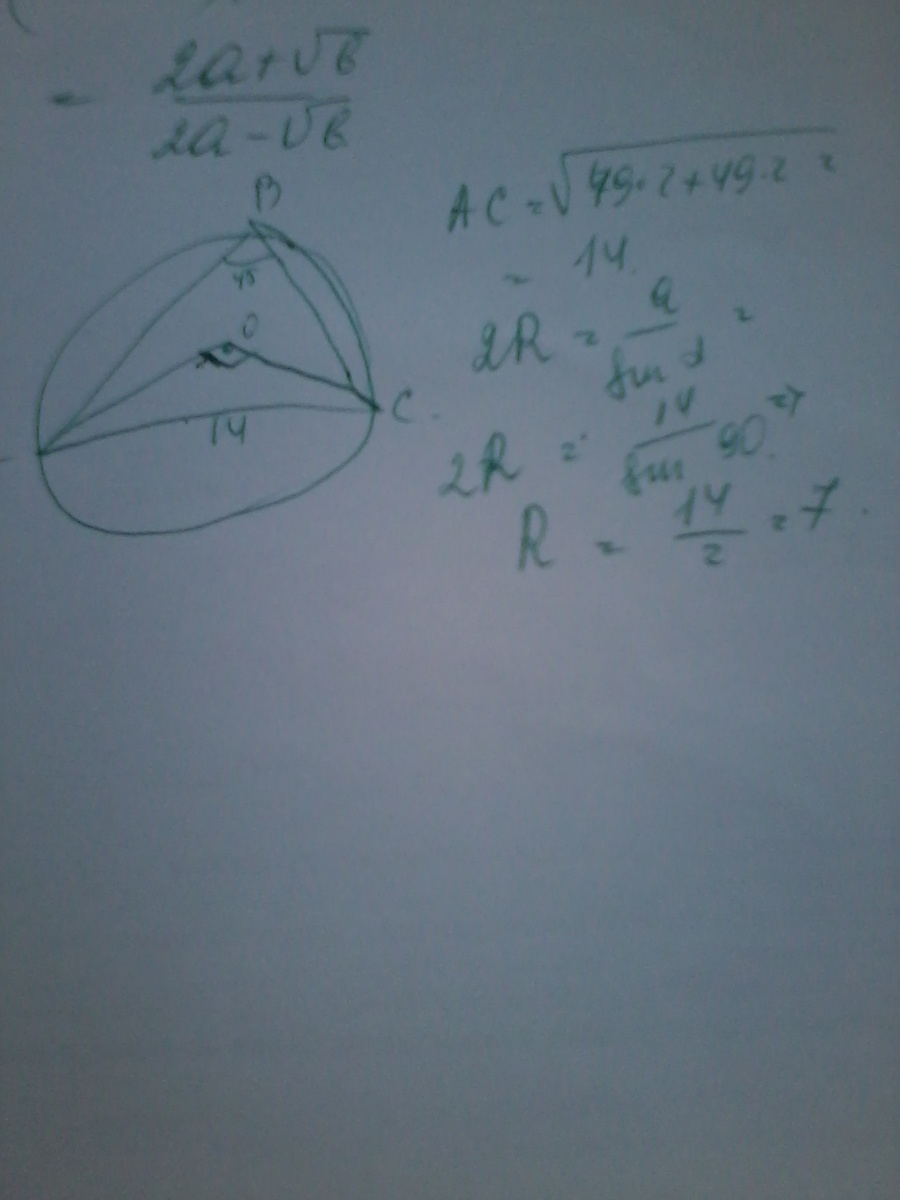 = (2a+√b)/(2a-√b)
B
45
O
14
C.
AC = √(49·2+49·2) =
= 14.
2R = a/sin α =
2R = 14/sin 90. =>
R = 14/2 = 7.